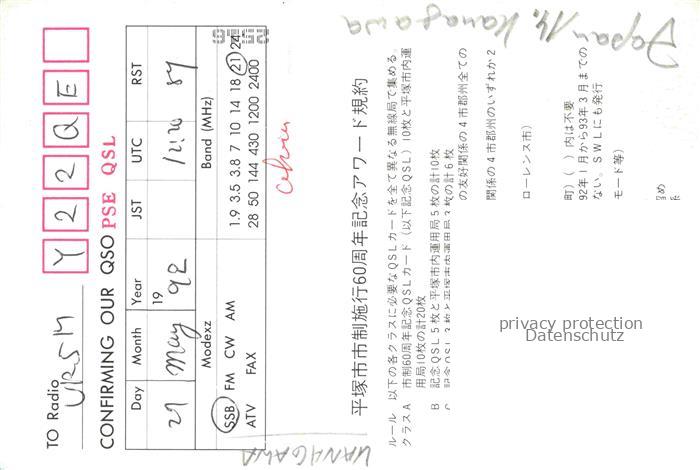 TO Radio
Y 2 2 Q E
CONFIRMING OUR QSO PSE QSL
Day Month Year JST UTC RST
27 May 19 92 12:20 57
Modexz Band (MHz)
SSB FM CW AM 1.9 3.5 3.8 7 10 14 18 21 24
ATV FAX 28 50 144 430 1200 2400
KANAGAWA
Japan Kanagawa
平塚市市制施行60周年記念アワード規約
ルール 以下の各クラスに必要なQSLカードを全て異なる無線局で集める。
クラスA 市制60周年記念QSLカード(以下記念QSL)10枚と平塚市内運
用局10枚の計20枚
B 記念QSL5枚と平塚市内運用局5枚の計10枚
の計6枚
の友好関係の4市郡州全ての
関係の4市郡州のいずれか2
ローレンス市)
町)( )内は不要
92年1月から93年3月までの
ない。SWLにも発行
モード等)
privacy protection
Datenschutz